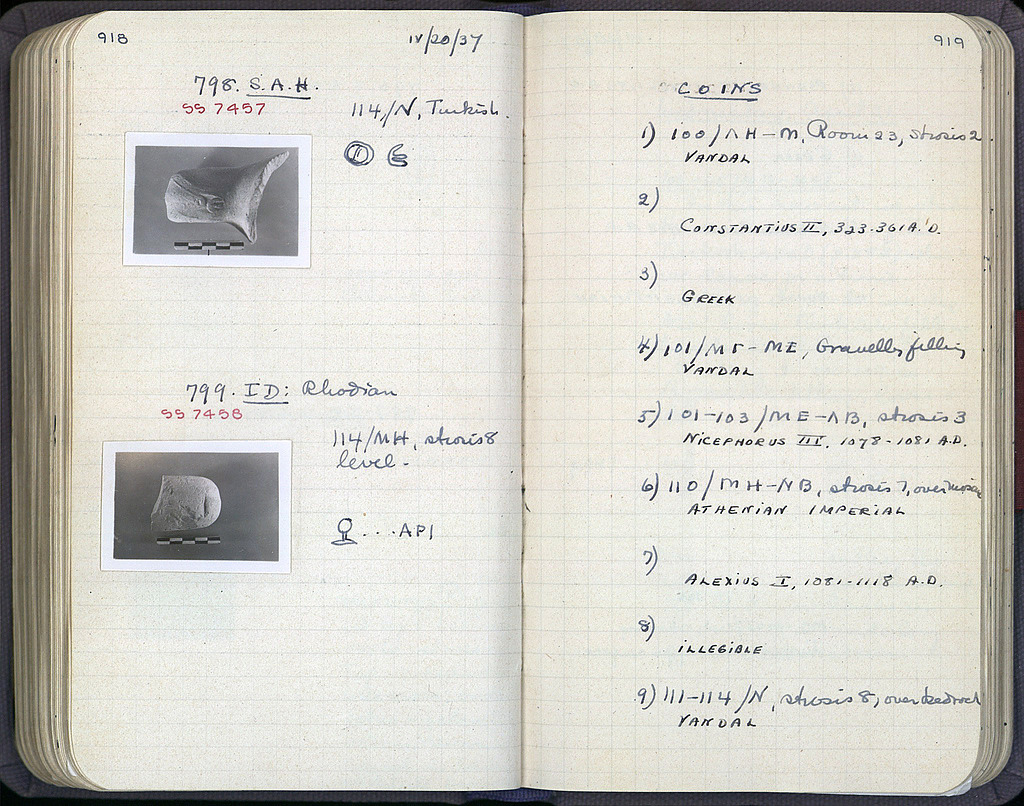 918
IV/20/37
798. S.A.H.
SS 7457
114/N, Turkish.
799. ID: Rhodian
SS 7458
114/MH, strosis 8
level.
...API
919
COINS
1) 100/ΛH-M, Room 23, strosis 2.
VANDAL
2)
CONSTANTIUS II, 323-361 A.D.
3)
GREEK
4) 101/ME, Gravelly filling
VANDAL
5) 101-103/ME-ΛB, strosis 3
NICEPHORUS III, 1078-1081 A.D.
6) 110/MH-NB, strosis 7, over
ATHENIAN IMPERIAL
7)
ALEXIUS I, 1081-1118 A.D.
8)
ILLEGIBLE
9) 111-114/N, strosis 8, over bedrock
VANDAL